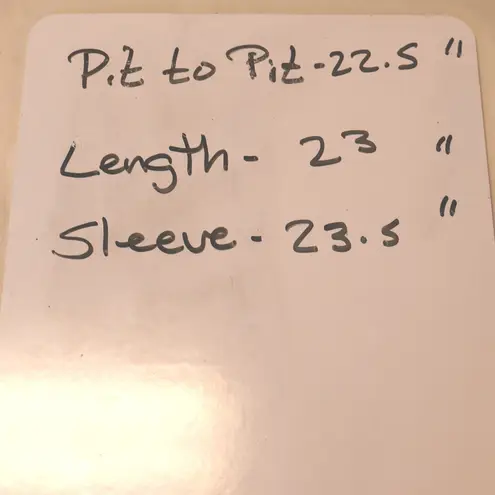 Pit to Pit - 22.5 "
Length - 23 "
Sleeve - 23.5 "